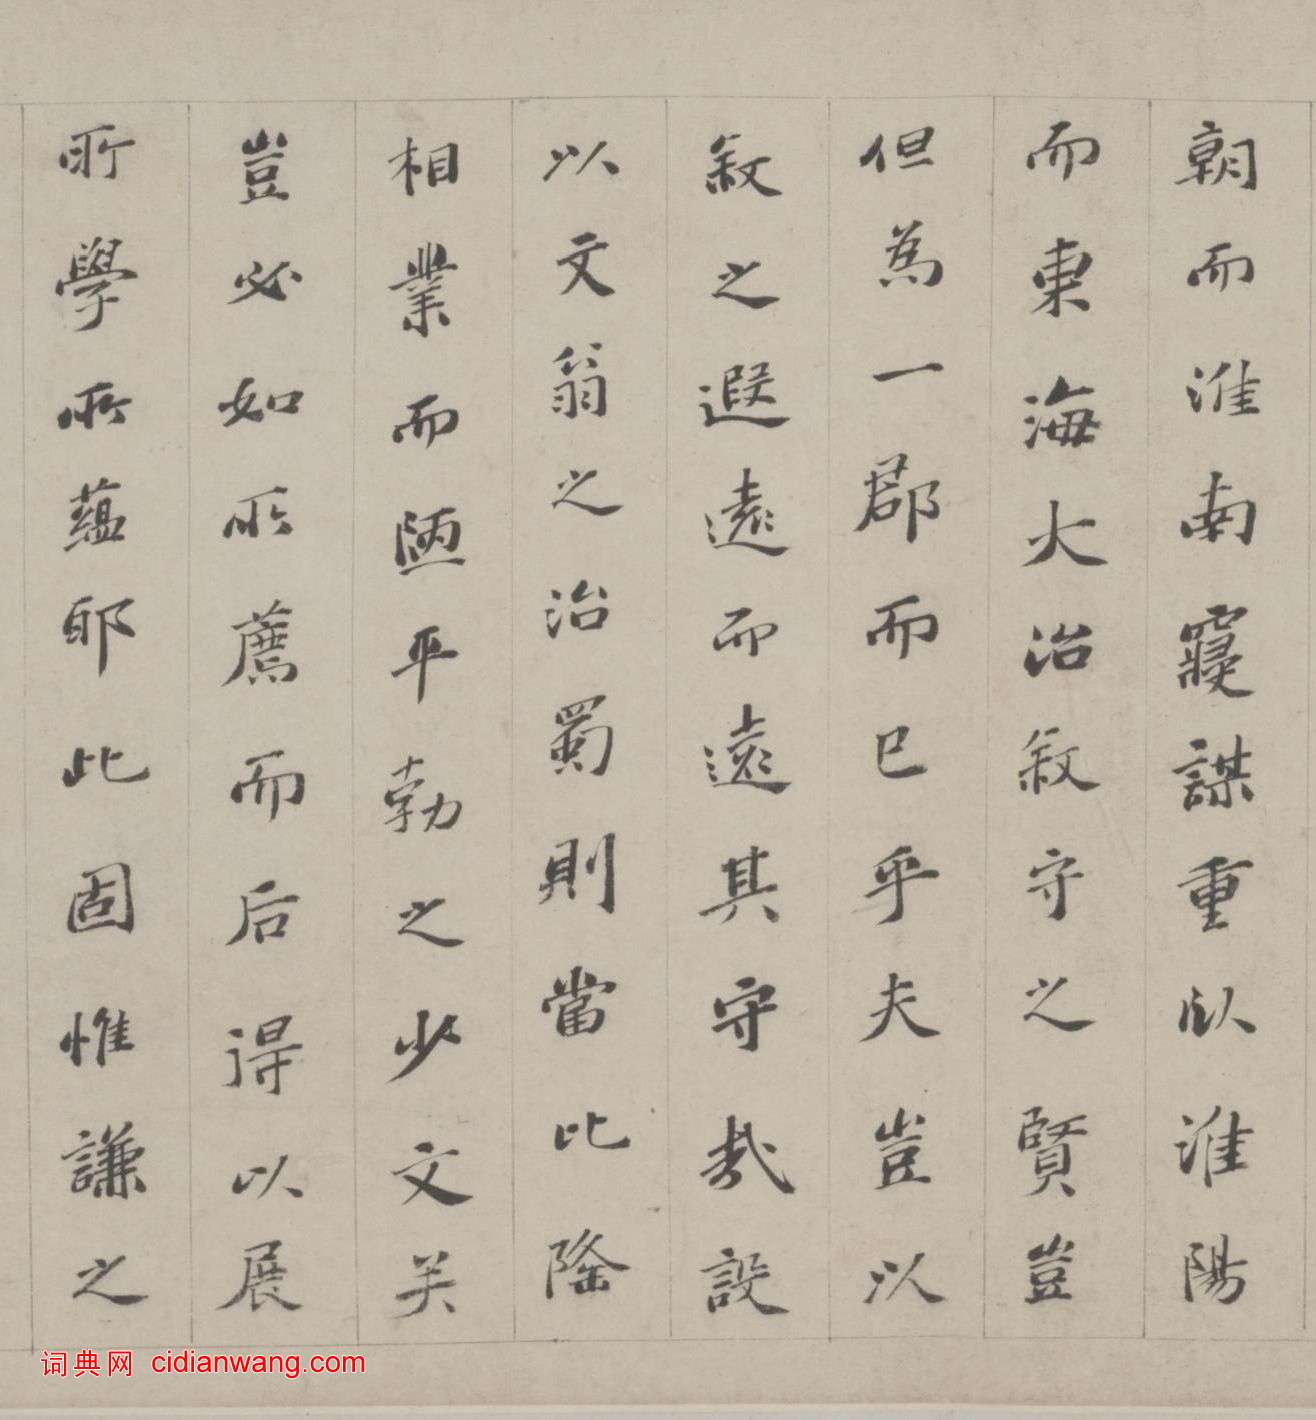 朝而淮南寢謀重臥淮陽
而東海大治敘守之賢豈
但為一郡而已乎夫豈以
敘之遐遠而遠其守哉設
以文翁之治蜀則當比隆
相業而陋平勃之少文矣
豈必如所薦而后得以展
所學所蘊耶此固惟謙之
词典网 cidianwang.com